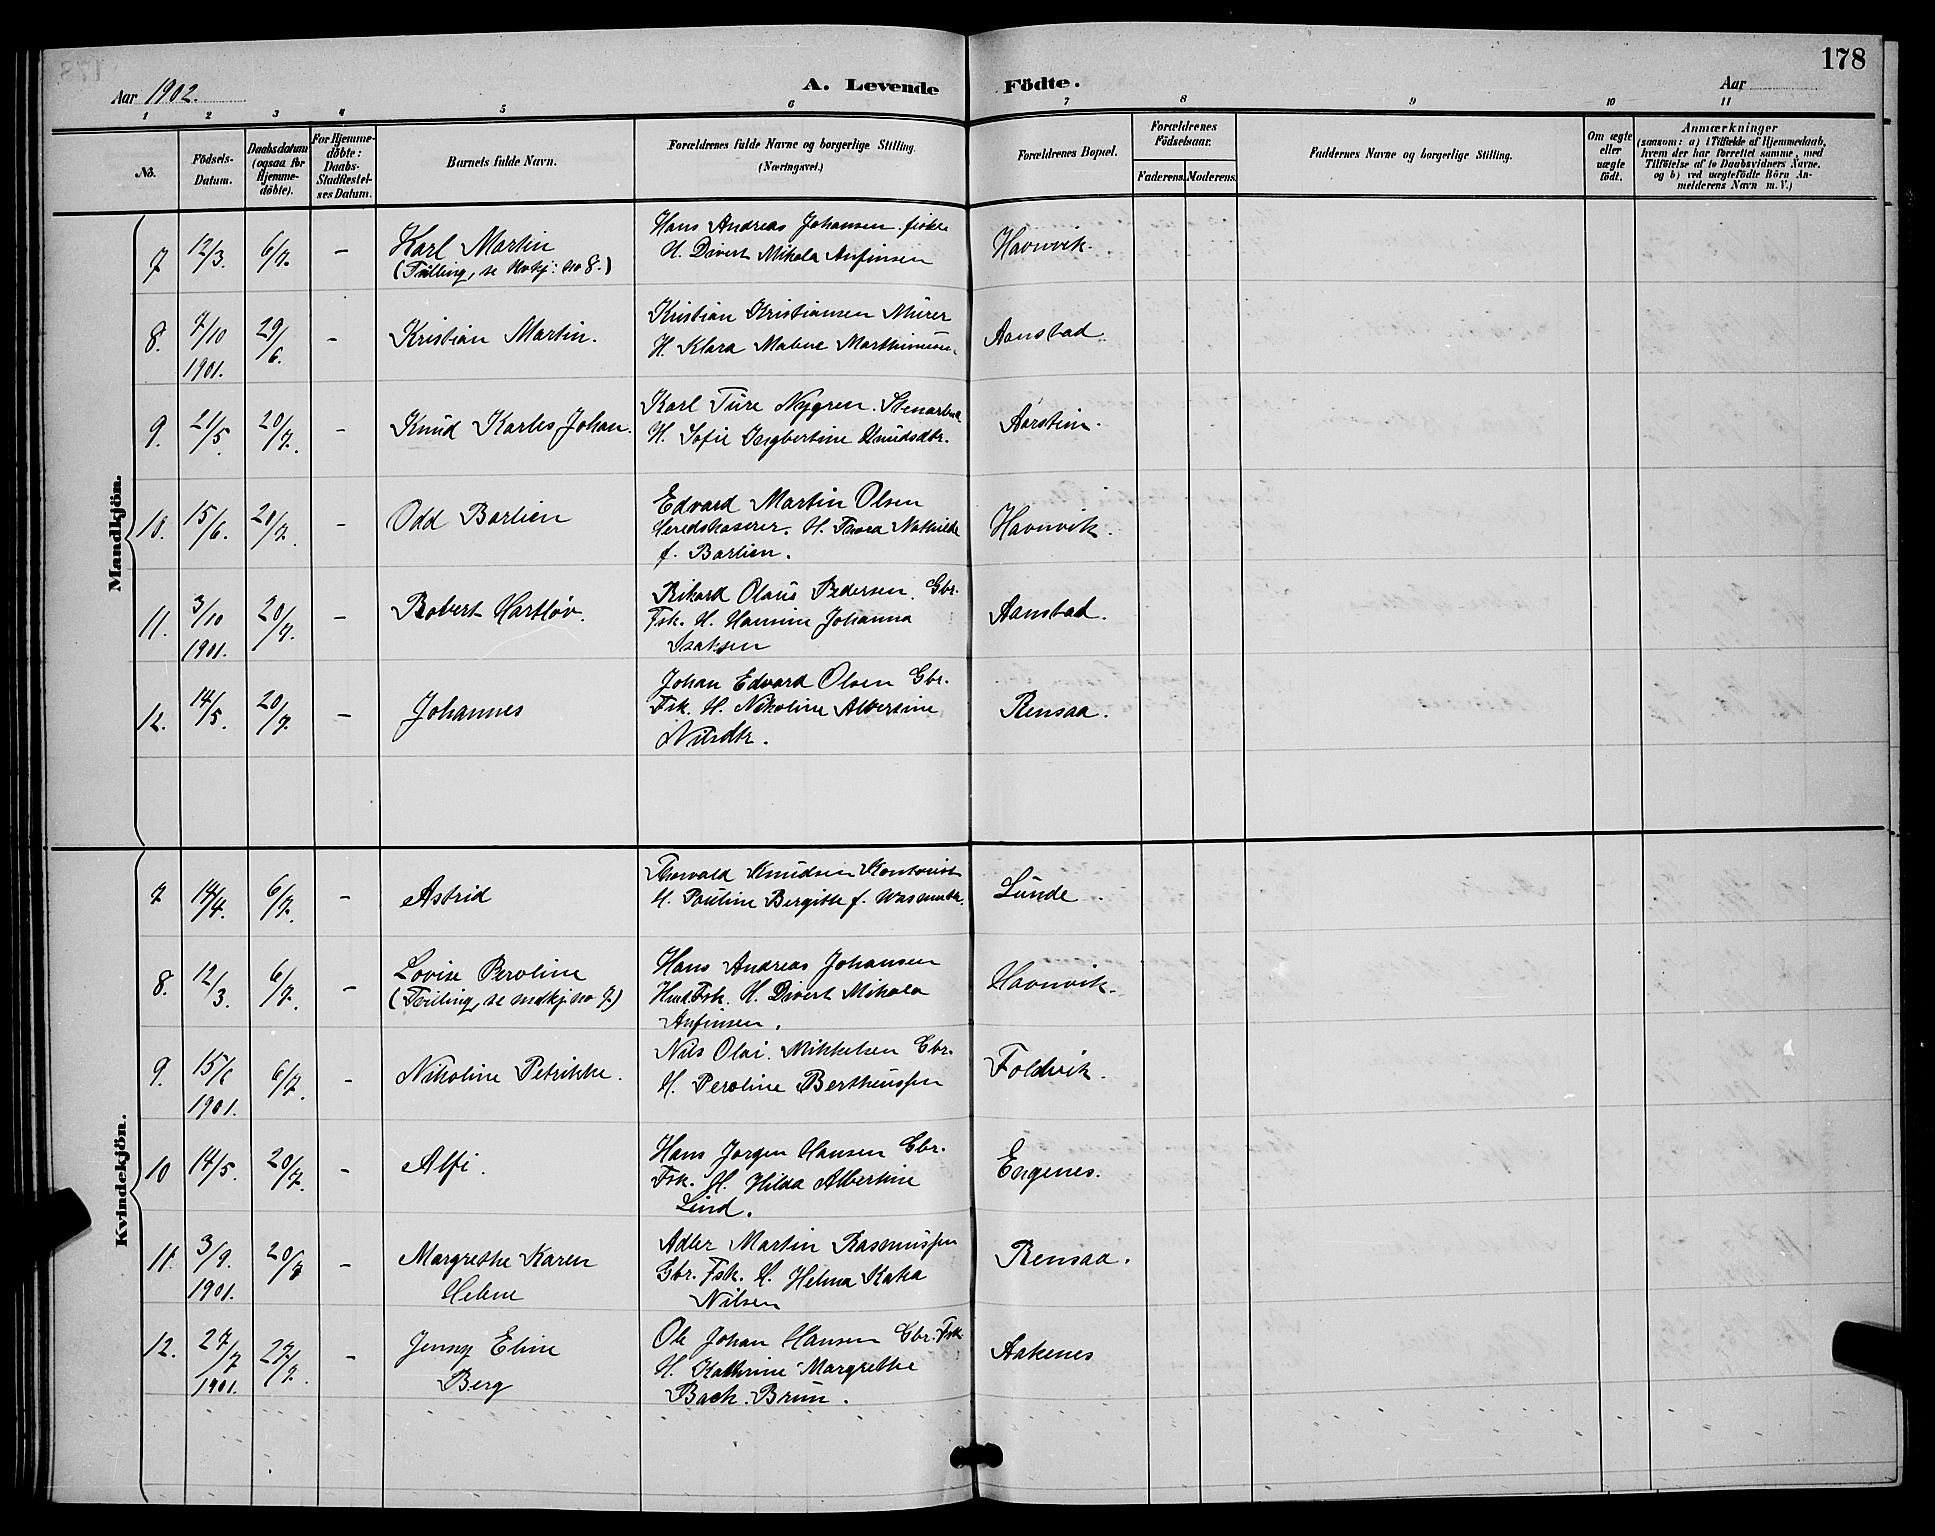 178
Aar 1902.
A. Levende Födte.
Aar
1 2 3 4 5 6 7 8 9 10 11
No.
Födsels-
Datum.
Daabsdatum
(ogsaa for
Hjemme-
döbte).
For Hjemme-
döbte:
Daabs-
Stadfæstel-
ses Datum.
Barnets fulde Navn.
Forældrenes fulde Navne og borgerlige Stilling.
(Næringsvei.)
Forældrenes Bopæl.
Forældrenes
Födselsaar.
Faderens. Moderens.
Faddernes Navne og borgerlige Stilling.
Om ægte
eller
uægte
født.
Anmærkninger
(saasom: a) i Tilfælde af Hjemmedaab,
hvem der har forrettet samme, med
Tilföielse af to Daabsvidners Navne.
og b) ved uægtefödte Börn An-
melderens Navn m. V.)
Mandkjön.
7 12/3. 6/7. - Karl Martin
(Tvilling, se kvkj: no 8.)
Hans Andreas Johansen
H. Divert Mikola Anfinsen
Havnvik.
8. 7/10 1901. 29/6. - Kristian Martin.
Kristian Kristiansen Mürer
H. Klara Malene
Aanstad.
9. 21/5. 20/7. - Knüd Karles Johan.
Karl Türe Nygren.
H. Sofie Ingbertine Knüdsdtr.
Aarstein.
10. 15/6. 20/7. - Odd Barlien
Edvard Martin Olsen
Heredskaserer. H. Thora Mathilde
f. Barlien.
Havnvik.
11. 3/10 1901. 20/7. - Robert Hartløv.
Rikard Olaüs Pedersen. Gbr.
Fsk. H. Hansine Johanna
Isaksen
Aanstad.
12. 14/5. 20/7. - Johannes
Johan Edvard Olsen Gbr.
Fsk. H. Nikoline Albertine
Nilsdtr.
Rensaa.
Kvindekjön.
7 14/4. 6/7. - Astrid
Thorvald Knüdsen Kontorist
H. Paüline Bergitte f.
Lünde
8. 12/3. 6/7. - Lovise Peroline
(Tvilling, se mdkj no 7)
Hans Andreas Johansen
Hmd. Fsk. H. Divert Mikola
Anfinsen.
Havnvik.
9. 15/6 1901. 6/7. - Nikoline Petrikke.
Nils Olai Mikkelsen Gbr.
H. Peroline Bertheüssen
Foldvik.
10 14/5. 20/7. - Alfi.
Hans Jørgen Hansen Gbr.
Fsk. H. Hilda Albertine
Lind.
Engenes.
11. 3/9. 1901. 20/7 - Margrethe Karen
Helene
Adler Martin Rasmüssen
Gbr. Fsk. H. Helma Kaka
Nilsen
Rensaa.
12. 27/7 1901. 27/7. - Jenny Eline
Berg
Ole Johan Hansen Gbr. Fsk.
H. Kathrine Margrethe
Back. Brün.
Aakenes